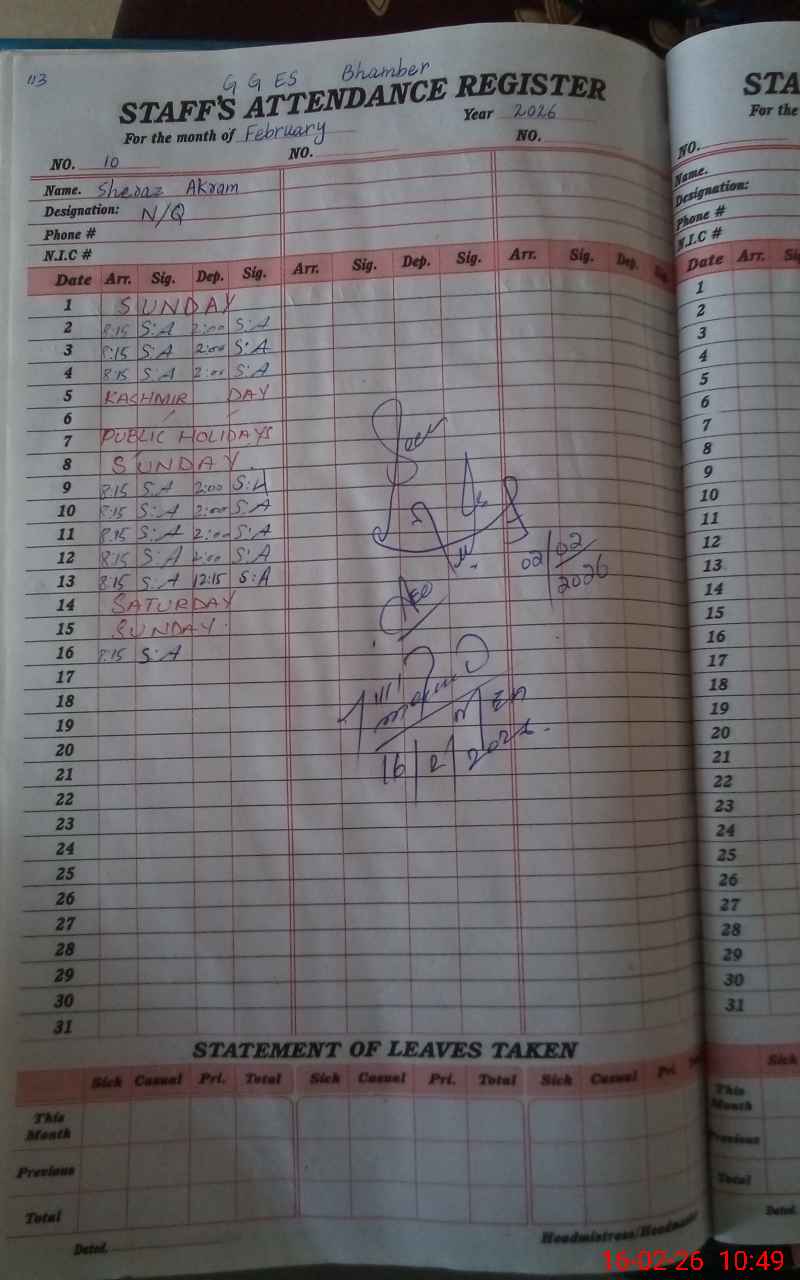 113
G G ES Bhamber
STAFF'S ATTENDANCE REGISTER
For the month of February Year 2026
NO. 10 NO. NO.
Name. Sheraz Akram
Designation: N/Q
Phone #
N.I.C #
Date Arr. Sig. Dep. Sig. Arr. Sig. Dep. Sig. Arr. Sig. Dep. Sig.
1 SUNDAY
2 8:15 S:A 2:00 S:A
3 8:15 S:A 2:00 S:A
4 8:15 S:A 2:00 S:A
5 KASHMIR DAY
6
7 PUBLIC HOLIDAYS
8 SUNDAY
9 8:15 S:A 2:00 S:A
10 8:15 S:A 2:00 S:A
11 8:15 S:A 2:00 S:A
12 8:15 S:A 2:00 S:A
13 8:15 S:A 12:15 S:A
14 SATURDAY
15 SUNDAY
16 8:15 S:A
17
18
19
20
21
22
23
24
25
26
27
28
29
30
31
02/02/2026
16/2/2026
STATEMENT OF LEAVES TAKEN
Sick Casual Pri. Total Sick Casual Pri. Total Sick Casual Pri.
This Month
Previous
Total
Dated.
Headmistress/
STA
For the
NO.
Name.
Designation:
Phone #
N.I.C #
Date Arr.
1
2
3
4
5
6
7
8
9
10
11
12
13
14
15
16
17
18
19
20
21
22
23
24
25
26
27
28
29
30
31
Sick
This Month
Previous
Total
Dated.
16-02-26 10:49